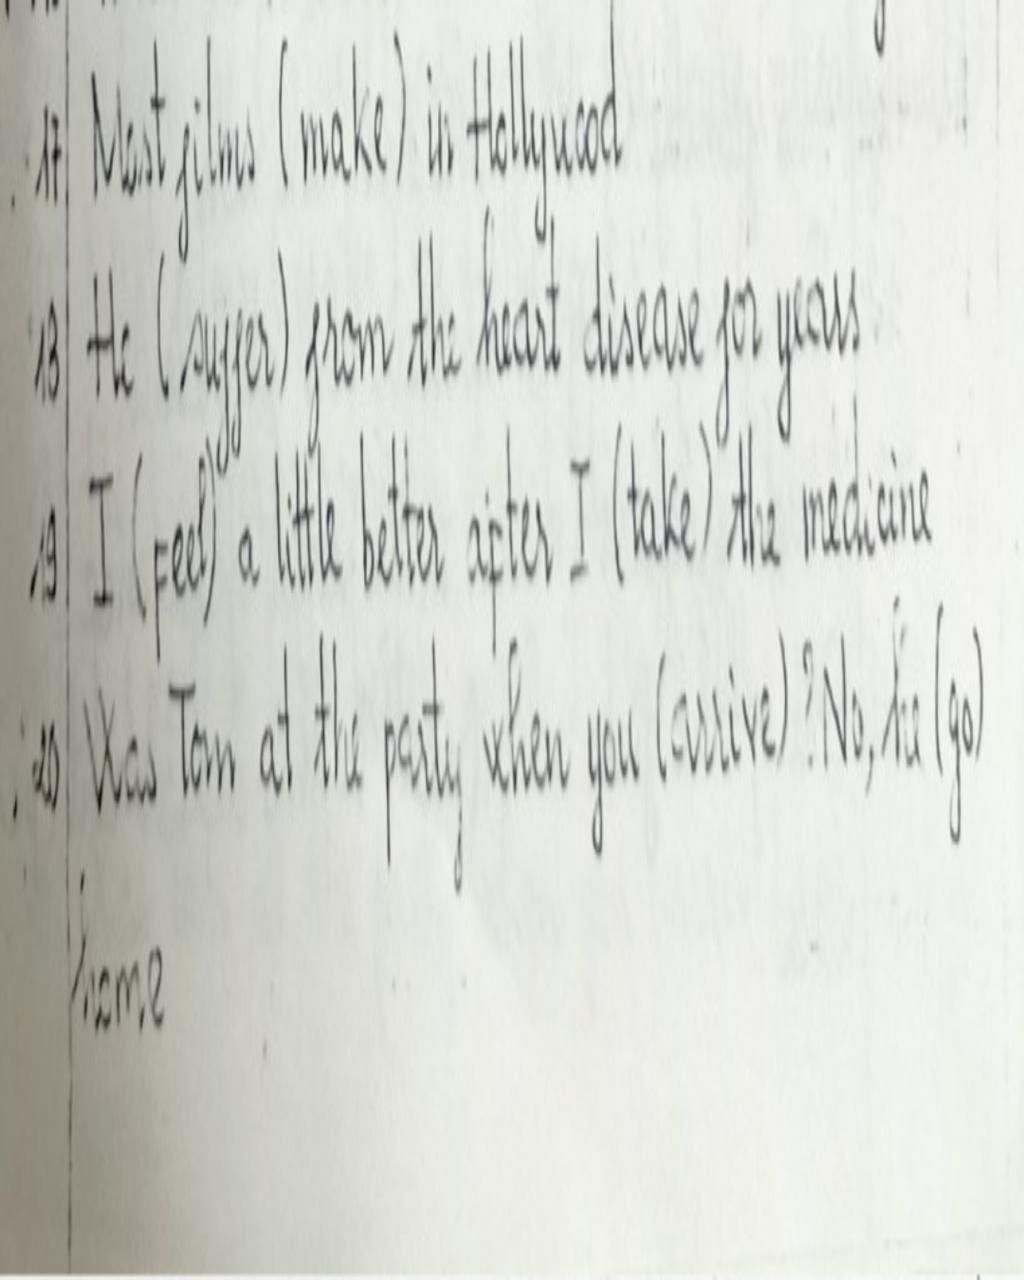 17 Most films (make) in Hollywood
18 He (suffer) from the heart disease for years
19 I (feel) a little better after I (take) the medicine
20 Was Tom at the party when you (arrive)? No, he (go)
home